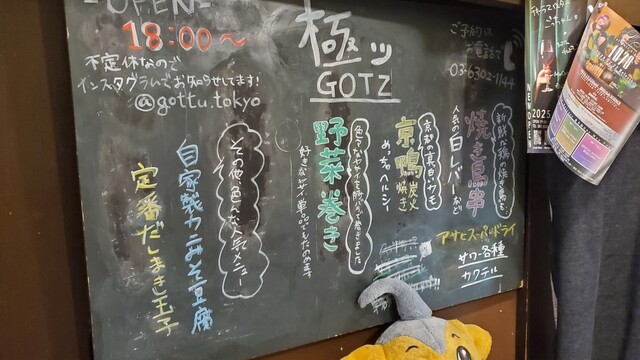 -OPEN-
18:00〜
不定休なので
インスタグラムでお知らせしてます!
@gottu.tokyo
極ッ
GOTZ
ご予約は
お電話で
03-6302-1144
新鮮な鶏の焼き鳥を
焼き鳥串
人気の白レバーなど
京都の真白いカモ
京鴨炭火焼き
めっちゃヘルシー
色々なヤサイを豚バラで巻きました
野菜巻き
好きなヤサイ単品でもたのめます
その他、色々な人気メニュー
自家製カニみそ豆腐
定番だしまき玉子
アサヒスーパードライ
サワー各種
カクテル
NEW OPEN
2025
10/20